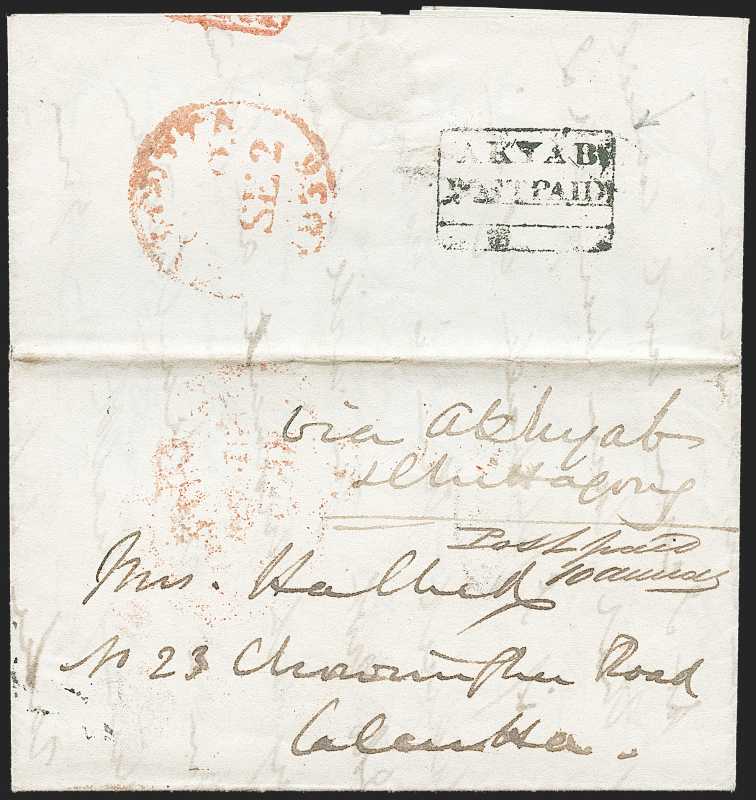 SE 2
AKYAB
POST PAID
via Akhyab
& Chittagong
Post paid
Mrs. Halhed
No 23 Chowringhee Road
Calcutta.